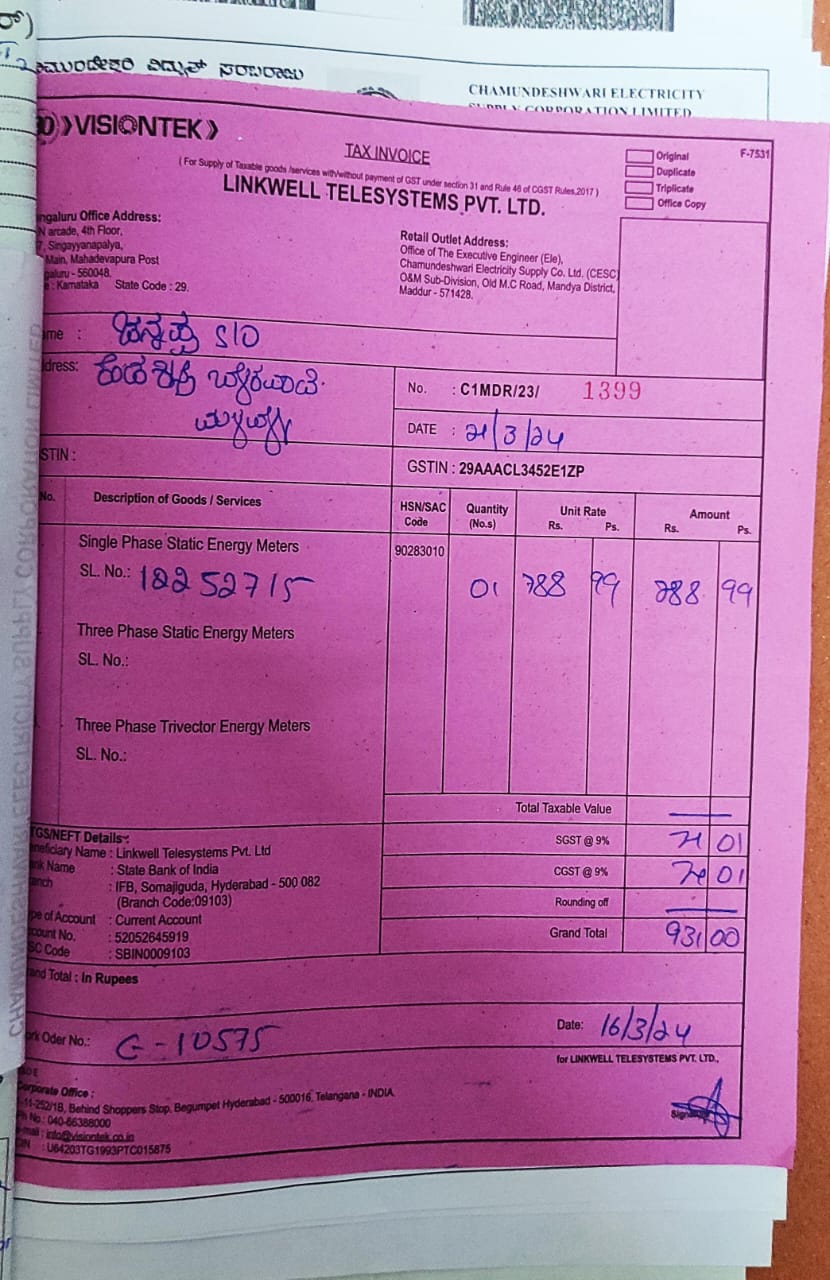 ಚಾಮುಂಡೇಶ್ವರಿ ವಿದ್ಯುತ್ ಸರಬರಾಜು
CHAMUNDESHWARI ELECTRICITY
SUPPLY CORPORATION LIMITED
VISIONTEK
TAX INVOICE
( For Supply of Taxable goods /services with/without payment of GST under section 31 and Rule 46 of CGST Rules,2017 )
LINKWELL TELESYSTEMS PVT. LTD.
Original
Duplicate
Triplicate
Office Copy
F-7531
ngaluru Office Address:
N arcade, 4th Floor,
7, Singayyanapalya,
Main, Mahadevapura Post
galuru - 560048.
e : Karnataka State Code : 29.
Retail Outlet Address:
Office of The Executive Engineer (Ele),
Chamundeshwari Electricity Supply Co. Ltd. (CESC)
O&M Sub-Division, Old M.C Road, Mandya District,
Maddur - 571428.
ame : S/O
dress:
No. : C1MDR/23/ 1399
DATE : 21/3/24
STIN :
GSTIN : 29AAACL3452E1ZP
No. Description of Goods / Services HSN/SAC Code Quantity (No.s) Unit Rate Rs. Ps. Amount Rs. Ps.
Single Phase Static Energy Meters 90283010
SL. No.: 18252715 01 788 99 788 99
Three Phase Static Energy Meters
SL. No.:
Three Phase Trivector Energy Meters
SL. No.:
Total Taxable Value
SGST @ 9% 71 01
CGST @ 9% 71 01
Rounding off
Grand Total 931 00
TGS/NEFT Details:
neficiary Name : Linkwell Telesystems Pvt. Ltd
nk Name : State Bank of India
anch : IFB, Somajiguda, Hyderabad - 500 082
(Branch Code:09103)
pe of Account : Current Account
count No. : 52052645919
SC Code : SBIN0009103
and Total : In Rupees
ork Oder No.: G-10575
Date: 16/3/24
for LINKWELL TELESYSTEMS PVT. LTD.,
Corporate Office :
-11-252/1B, Behind Shoppers Stop, Begumpet Hyderabad - 500016, Telangana - INDIA.
Ph No.: 040-66388000
e-mail : info@visiontek.co.in
CIN : U64203TG1993PTC015875
Signatory